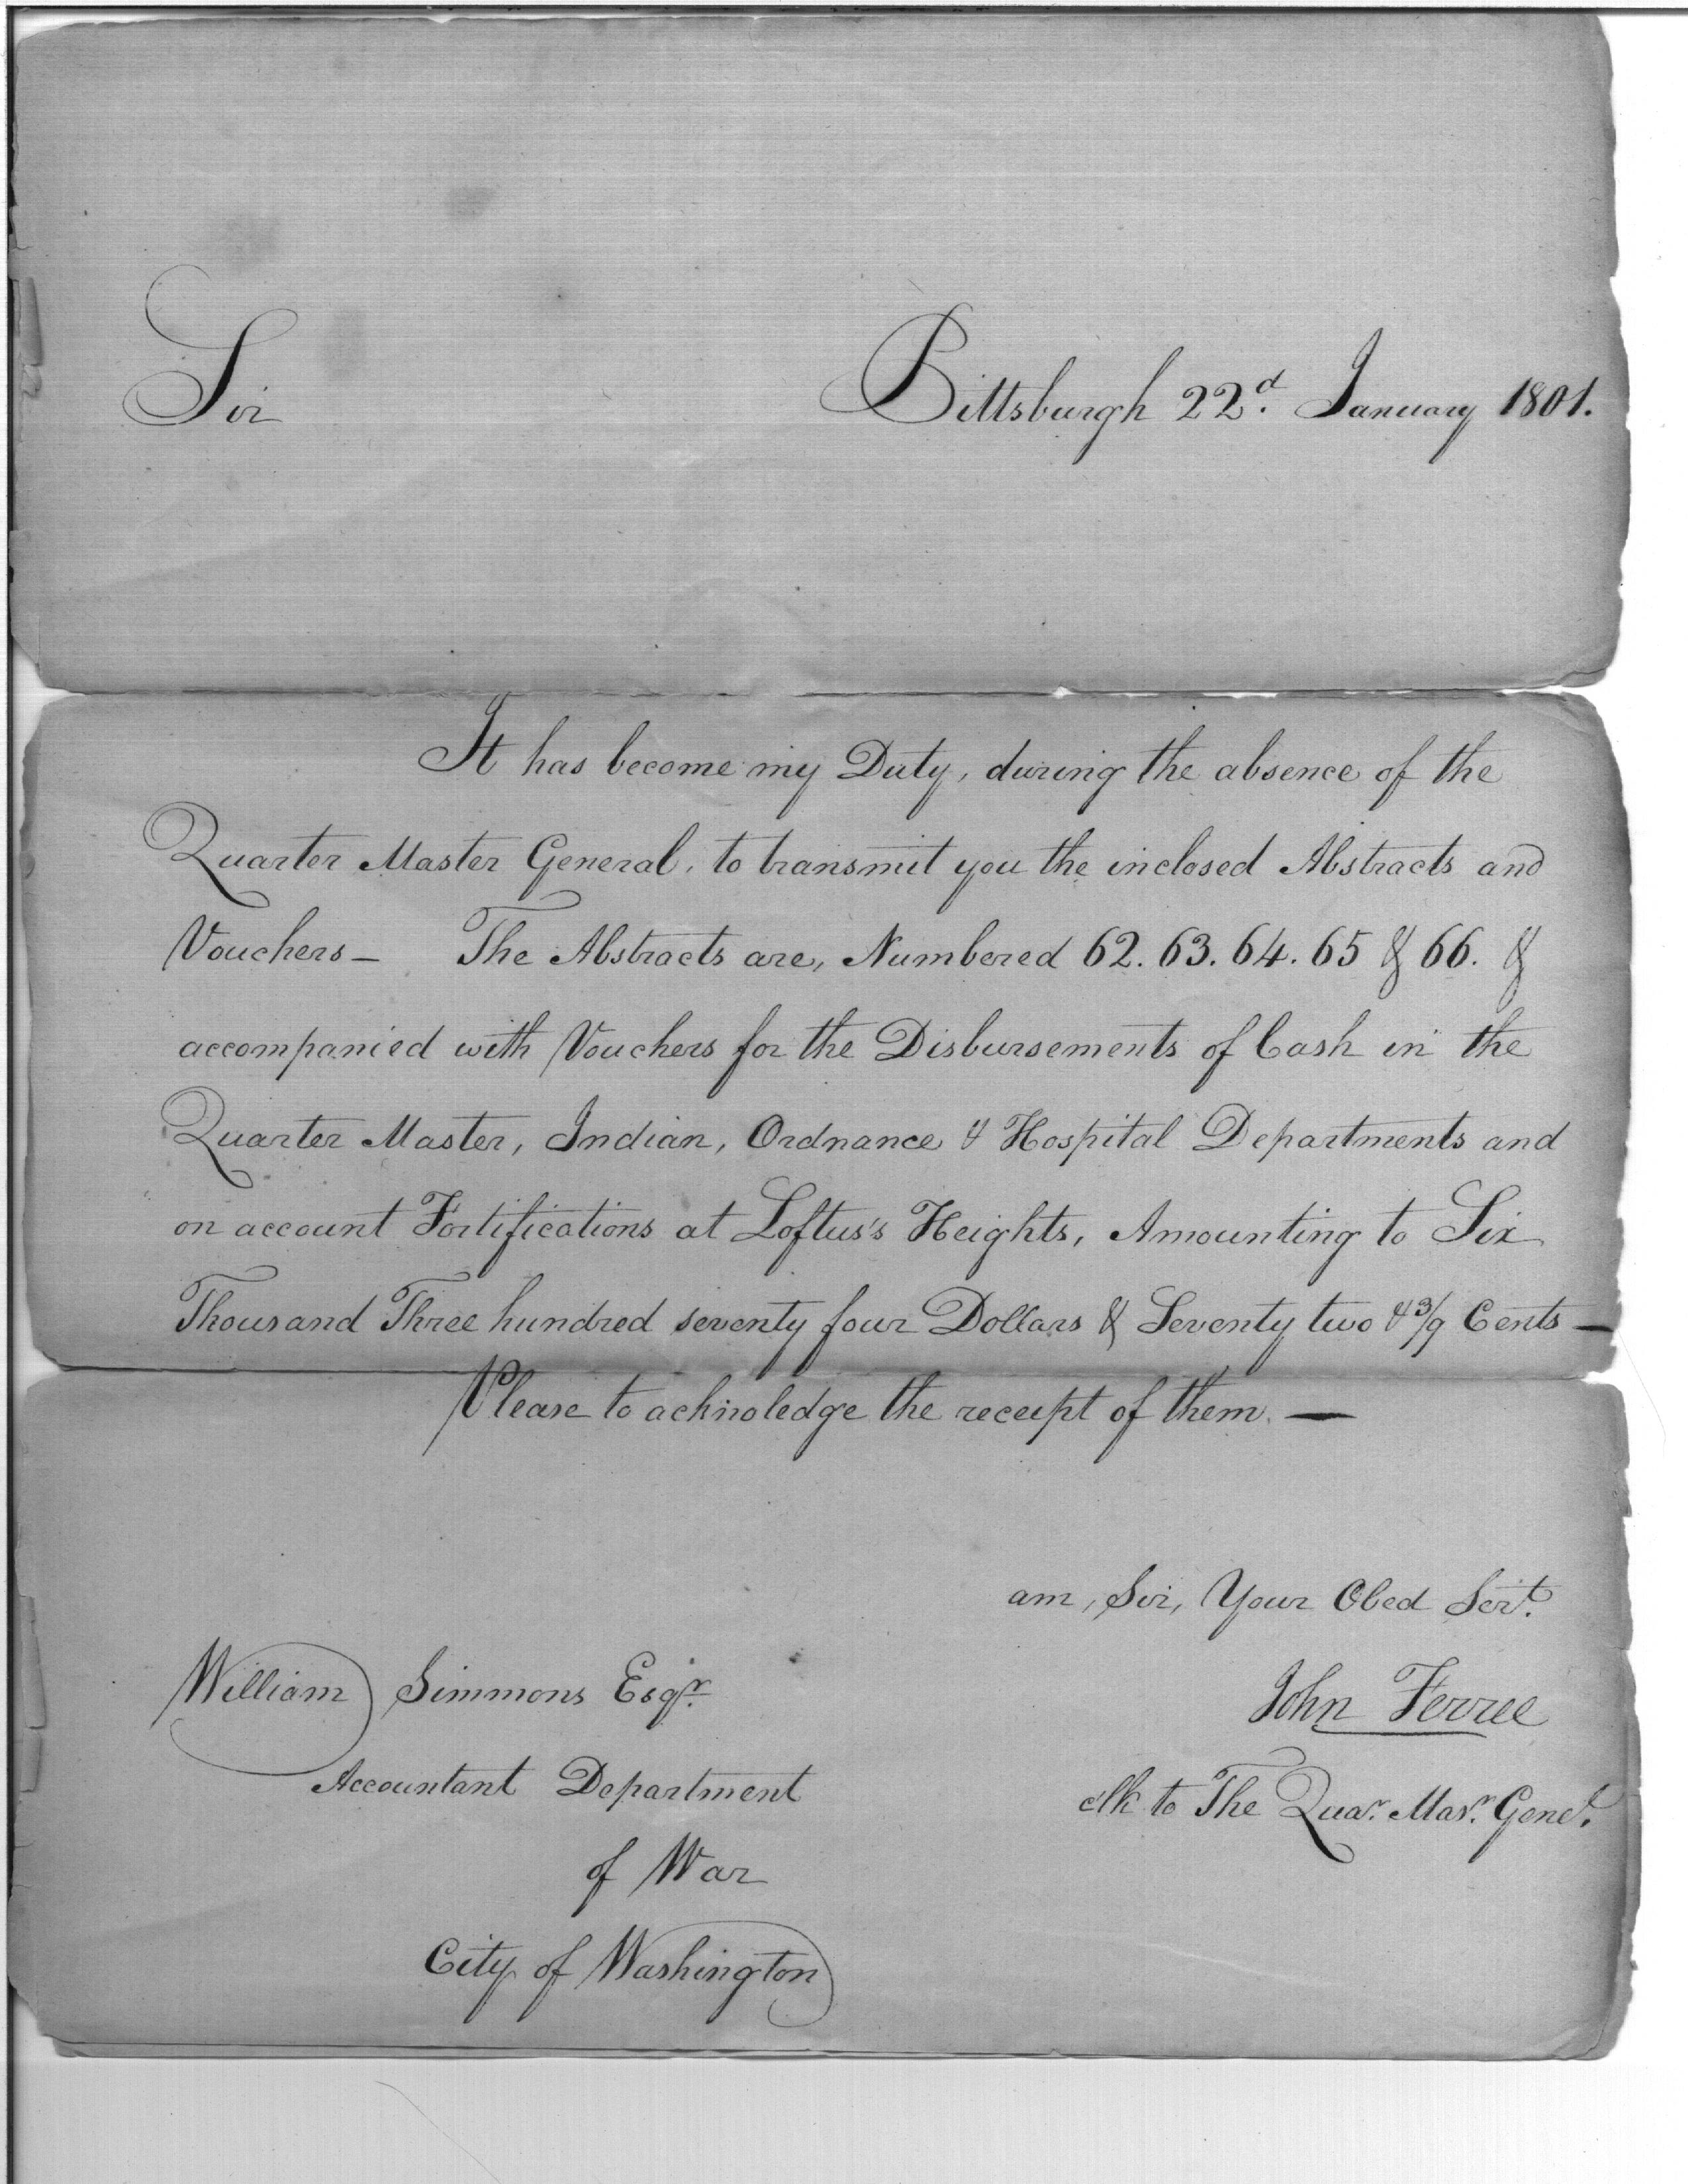 Sir
Pittsburgh 22d. January 1801.
It has become my Duty, during the absence of the
Quarter Master General, to transmit you the inclosed Abstracts and
Vouchers – The Abstracts are, Numbered 62. 63. 64. 65 & 66. &
accompanied with Vouchers for the Disbursements of Cash in the
Quarter Master, Indian, Ordnance & Hospital Departments and
on account Fortifications at Loftus's Heights, Amounting to Six
Thousand Three hundred seventy four Dollars & Seventy two & 3/9 Cents —
Please to acknoledge the receipt of them. —
am, Sir, Your Obed Servt.
John Ferree
clk to The Quar. Masr. Genel.
William Simmons Esqr.
Accountant Department
of War
City of Washington